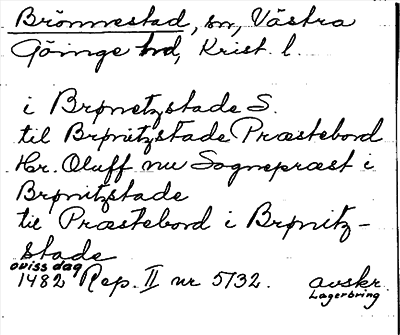 Brönnestad, sn, Västra
Göinge hd, Krist. l.
i Brønetzstade S.
til Brønitzstade Præstebord
Hr. Oluff nu Sognepræst i
Brønitzstade
til Præstebord i Brønitz-
stade
oviss dag
1482 Rep. II nr 5132. avskr.
Lagerbring